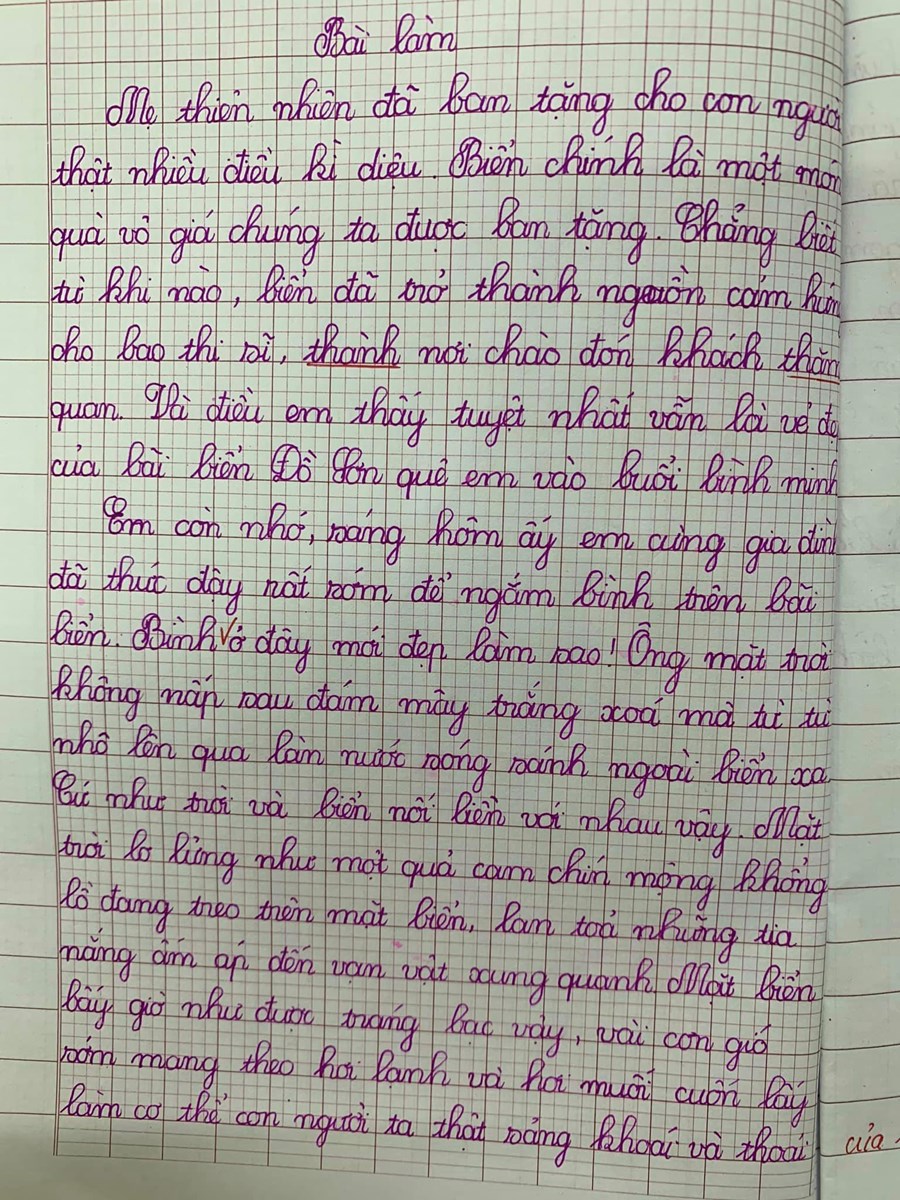 Bài làm
Mẹ thiên nhiên đã ban tặng cho con người
thật nhiều điều kì diệu. Biển chính là một món
quà vô giá chúng ta được ban tặng. Chẳng biết
từ khi nào, biển đã trở thành nguồn cảm hứn
cho bao thi sĩ, thành nơi chào đón khách thăm
quan. Và điều em thấy tuyệt nhất vẫn là vẻ đẹ
của bãi biển Đồ Sơn quê em vào buổi bình minh
Em còn nhớ, sáng hôm ấy em cùng gia đìn
đã thức dậy rất sớm để ngắm bình trên bãi
biển. Bình√ở đây mới đẹp làm sao! Ông mặt trời
không nấp sau đám mây trắng xoá mà từ từ
nhô lên qua làn nước sóng sánh ngoài biển xa.
Cứ như trời và biển nối liền với nhau vậy. Mặt
trời lơ lửng như một quả cam chín mộng khổng
lồ đang treo trên mặt biển, lan toả những tia
nắng ấm áp đến vạn vật xung quanh. Mặt biển
bấy giờ như được tráng bạc vậy, vài con gió
sớm mang theo hơi lạnh và hơi muối cuốn lấy
làm cơ thể con người ta thật sảng khoái và thoải
của